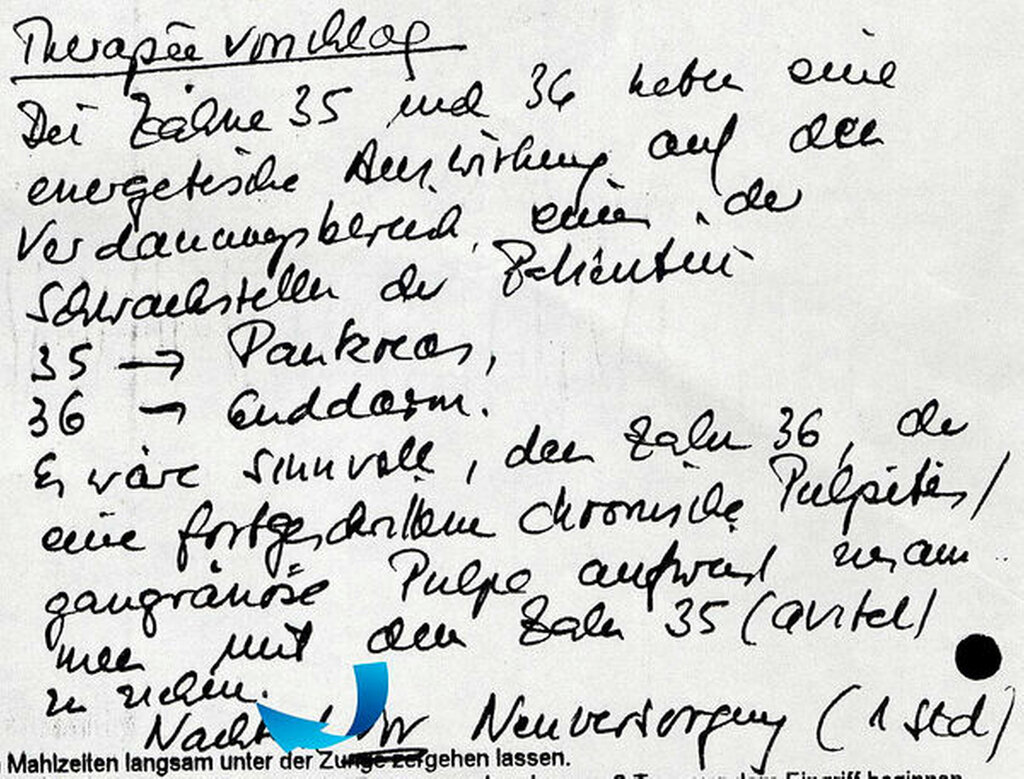 Therapievorschlag
Die Zähne 35 und 36 haben eine
energetische Auswirkung auf den
Verdauungsbereich, einer der
Schwachstellen der Patientin
35 → Pankreas,
36 → Enddarm.
Es wäre sinnvoll, den Zahn 36, der
eine fortgeschrittene chronische Pulpitis/
gangränöse Pulpe aufweist zusam
men mit dem Zahn 35 (avital)
zu ziehen.
Neuversorgung (1 Std)
Mahlzeiten langsam unter der Zunge zergehen lassen.